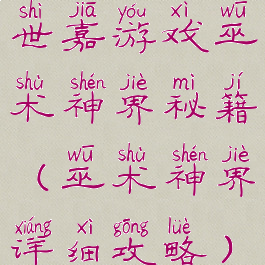 shì jiā yóu xì wū
世嘉游戏巫
shù shén jiè mì jí
术神界秘籍
wū shù shén jiè
（巫术神界
xiáng xì gōng lüè
详细攻略）